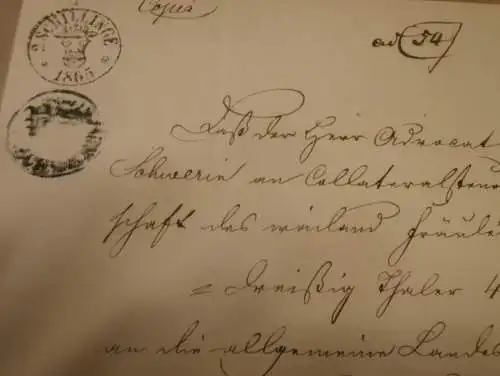 Copia
ad 54
2 SCHILLINGE
1865
Daß der Herr Advocat
Schwerin an Collateralsteu
schaft des weiland Fräule
= Dreißig Thaler 4
an die allgemeine Landes